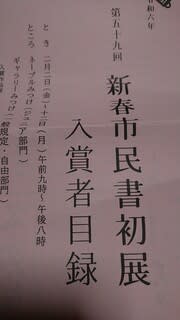 令和六年
第五十九回
新春市民書初展
入賞者目録
とき 二月二日(金)~十二日(月)午前九時~午後八時
ところ ネーブルみつけ(ジュニア部門)
ギャラリーみつけ(一般規定・自由部門)